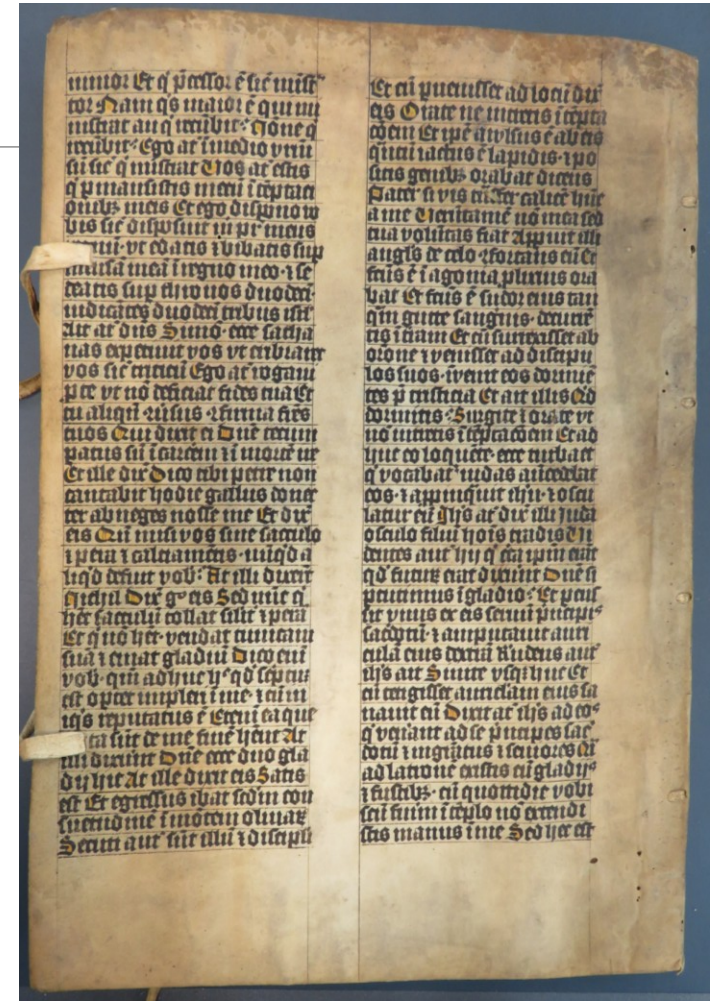 iunior Et q̄ p̄cessor ē sic̄ mīst
tor Nam q̄s maior ē qui mi
nistrat an q̄ recūbit· Nōne q̄
recūbit· Ego aūt ī medio vrm̄
sū sic̄ q̄ mīstrat Uos aūt estis
q̄ pmansistis mecū ī tēptaci
onibꝫ meis Et ego dispono vo
bis sic̄ disposuit m̄ pr̄ meus
regnū· vt edatis ⁊ bibatis sup
mēsā meā ī regno meo· ⁊ se
deatis sup thronos duodeci·
iudicātes duodeci tribus isrl̄
Ait aūt dn̄s Simō· ecce satha
nas expetiuit vos vt cribraret
vos sic̄ triticū Ego aūt rogaui
p te vt nō deficiat fides tua Et
tu aliqn̄ ꝯuersus ꝯfirma frēs
tuos Qui dixit ei Dn̄e tecum
paratus sū ī carcerē ⁊ ī mortē ire
Et ille dix̄ Dico tibi petre non
cantabit hodie gallus donec
ter abneges nosse me Et dix̄
eis Qn̄ misi vos sine sacculo
⁊ pera ⁊ calciamētis· nūq̄d a
liq̄d defuit vob̄· At illi dixerūt
Nichil Dix̄ g̊ eis Sed nūc q̄
hēt sacculū tollat silīt ⁊ perā
Et q̄ nō hēt· vendat tunicam
suā ⁊ emat gladiū Dico enī
vob̄· qm̄ adhuc h̄ qd̄ sc̄ptū
est oportet impleri ī me· ⁊ cū in
iq̄s reputatus ē Etenī ea que
sūt de me finē hn̄t At
illi dixerunt Dn̄e ecce duo gla
dij hic At ille dixit eis Satis
est Et egressus ibat sc̄dm̄ con
suetudinē ī mōtem oliuaꝝ
Secuti aūt sūt illū ⁊ discipli
Et cū puenisset ad locū dix̄
eis Orate ne intretis ī tēpta
cōem Et ip̄e awlsus ē ab eis
q̄ntū iactus ē lapidis· ⁊ po
sitis genibꝫ orabat dicens
Pater si vis trāsfer calicē hūc
a me Uerūtamē nō mea sed
tua voluntas fiat Appuit illi
angl̄s de celo ꝯfortans eū Et
fc̄us ē ī agonia plixius ora
bat Et fc̄us ē sudor eius tan
q̄m gutte sanguis· decurrē
tis ī trām Et cū surrexisset ab
orōne ⁊ venisset ad discipu
los suos· īvenit eos dormiē
tes p̄ tristicia Et ait illis Qd̄
dormitis· Surgite ⁊ orate vt
nō intretis ī tēptacōem Et ad
huc eo loquēte· ecce turba et
q̄ vocabat iudas antecedebat
eos· ⁊ appinq̄uit ih̄u· ⁊ oscu
latur eū Ih̄s aūt dix̄ illi Iuda
osculo filiū hoīs tradis Ui
dentes aūt hij q̄ circa ip̄m erāt
qd̄ futurū erat dixerūt Dn̄e si
percutimus ī gladio· Et percus
sit vnus ex eis seruū p̄ncipis
sacdotū· ⁊ amputauit auri
culā eius dextrā Rn̄dens aūt
ih̄s ait Sinite vsq̄ huc Et
cū tetigisset auriclam eius sa
nauit eū Dixit aūt ih̄s ad eos
q̄ venerant ad se p̄ncipes sac̄
dotū ⁊ mgr̄atus ⁊ seniores Qi
ad latronē existis cū gladijs
⁊ fustibꝫ· cū quottidie vobi
scū fuim̄ ī tēplo nō extendi
stis manus ī me Sed hec est